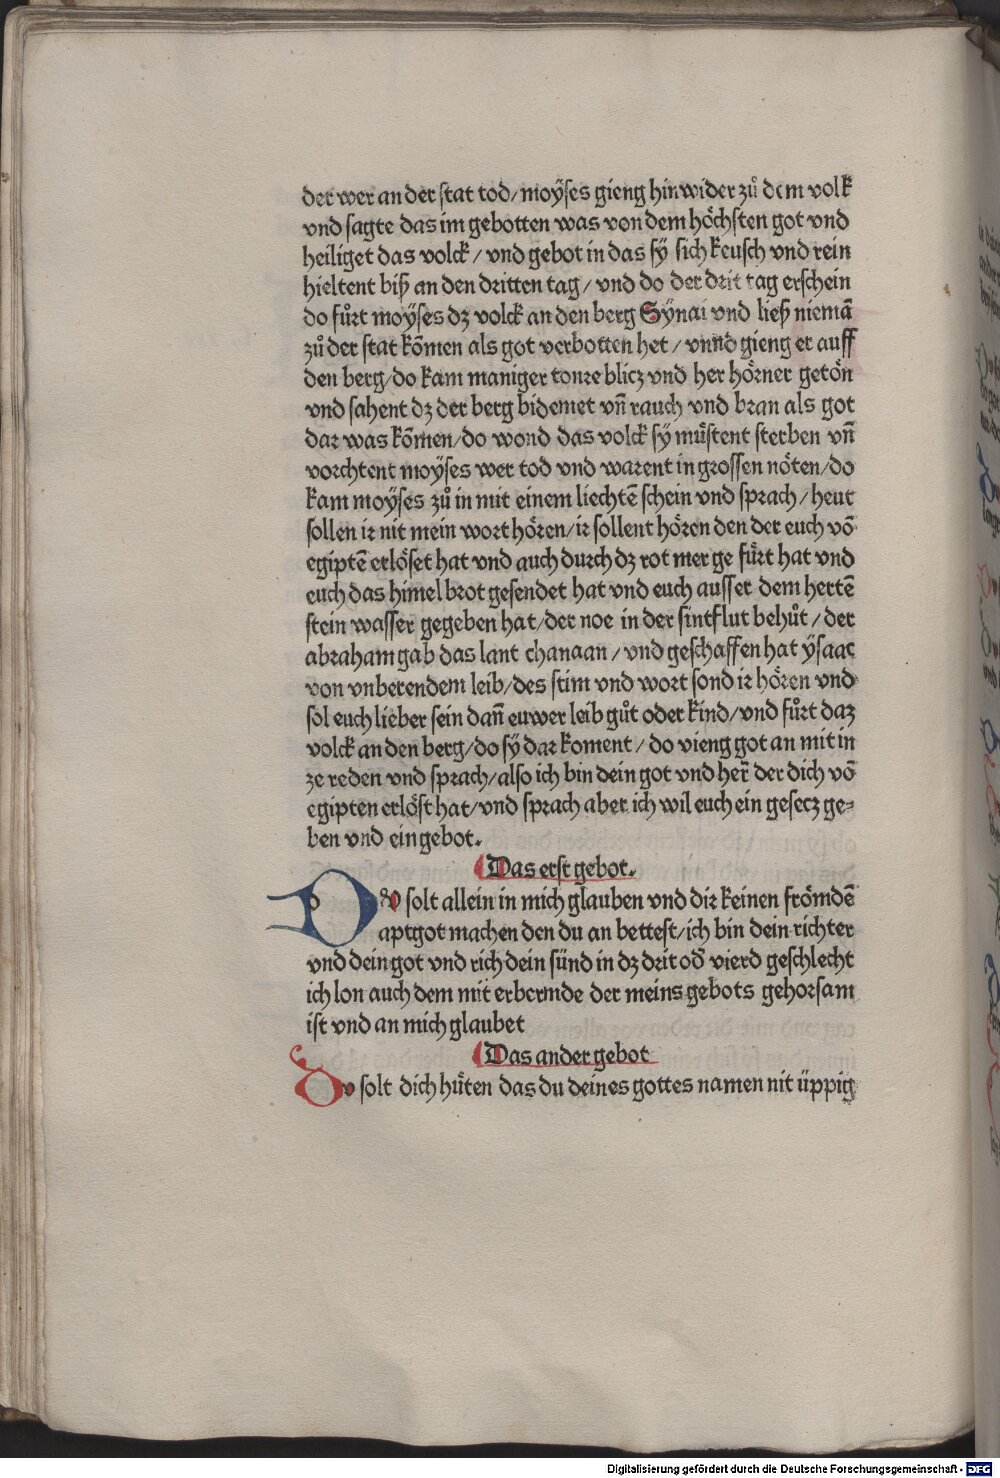 der wer an der stat tod/ moÿses gieng hinwider zuͦ dem volk
vnd sagte das im gebotten was von dem hoͤchsten got vnd
heiliget das volck/ vnd gebot in das sÿ sich keusch vnd rein
hieltent biß an den dritten tag/ vnd do der drit tag erschein
do fuͤrt moÿses dz volck an den berg Sÿnai vnd ließ niemā
zuͦ der stat kōmen als got verbotten het/ vnnd gieng er auff
den berg/ do kam maniger tonre blicz vnd her hoͤrner getoͤn
vnd sahent dz der berg bidemet vn̄ rauch vnd bran als got
dar was kōmen/ do wond das volck sÿ muͤstent sterben vn̄
vorchtent moÿses wer tod vnd warent in grossen noͤten/ do
kam moÿses zuͦ in mit einem liechtē schein vnd sprach/ heut
sollen ir nit mein wort hoͤren/ ir sollent hoͤren den der euch vō
egiptē erloͤset hat vnd auch durch dz rot mer ge fuͤrt hat vnd
euch das himel brot gesendet hat vnd euch ausser dem hertē
stein wasser gegeben hat/ der noe in der sintflut behuͦt/ der
abraham gab das lant chanaan/ vnd geschaffen hat ÿsaac
von vnberendem leib/ des stim vnd wort sond ir hoͤren vnd
sol euch lieber sein dan̄ euwer leib guͦt oder kind/ vnd fuͤrt daz
volck an den berg/ do sÿ dar koment/ do vieng got an mit in
ze reden vnd sprach/ also ich bin dein got vnd her̄ der dich vō
egipten erloͤst hat/ vnd sprach aber ich wil euch ein gesecz ge⸗
ben vnd ein gebot.
Das erst gebot.
Dv solt allein in mich glauben vnd dir keinen froͤmdē
aptgot machen den du an bettest/ ich bin dein richter
vnd dein got vnd rich dein sünd in dz drit od̄ vierd geschlecht
ich lon auch dem mit erbermde der meins gebots gehorsam
ist vnd an mich glaubet
Das ander gebot
Dv solt dich huͤten das du deines gottes namen nit üppig
Digitalisierung gefördert durch die Deutsche Forschungsgemeinschaft - DFG